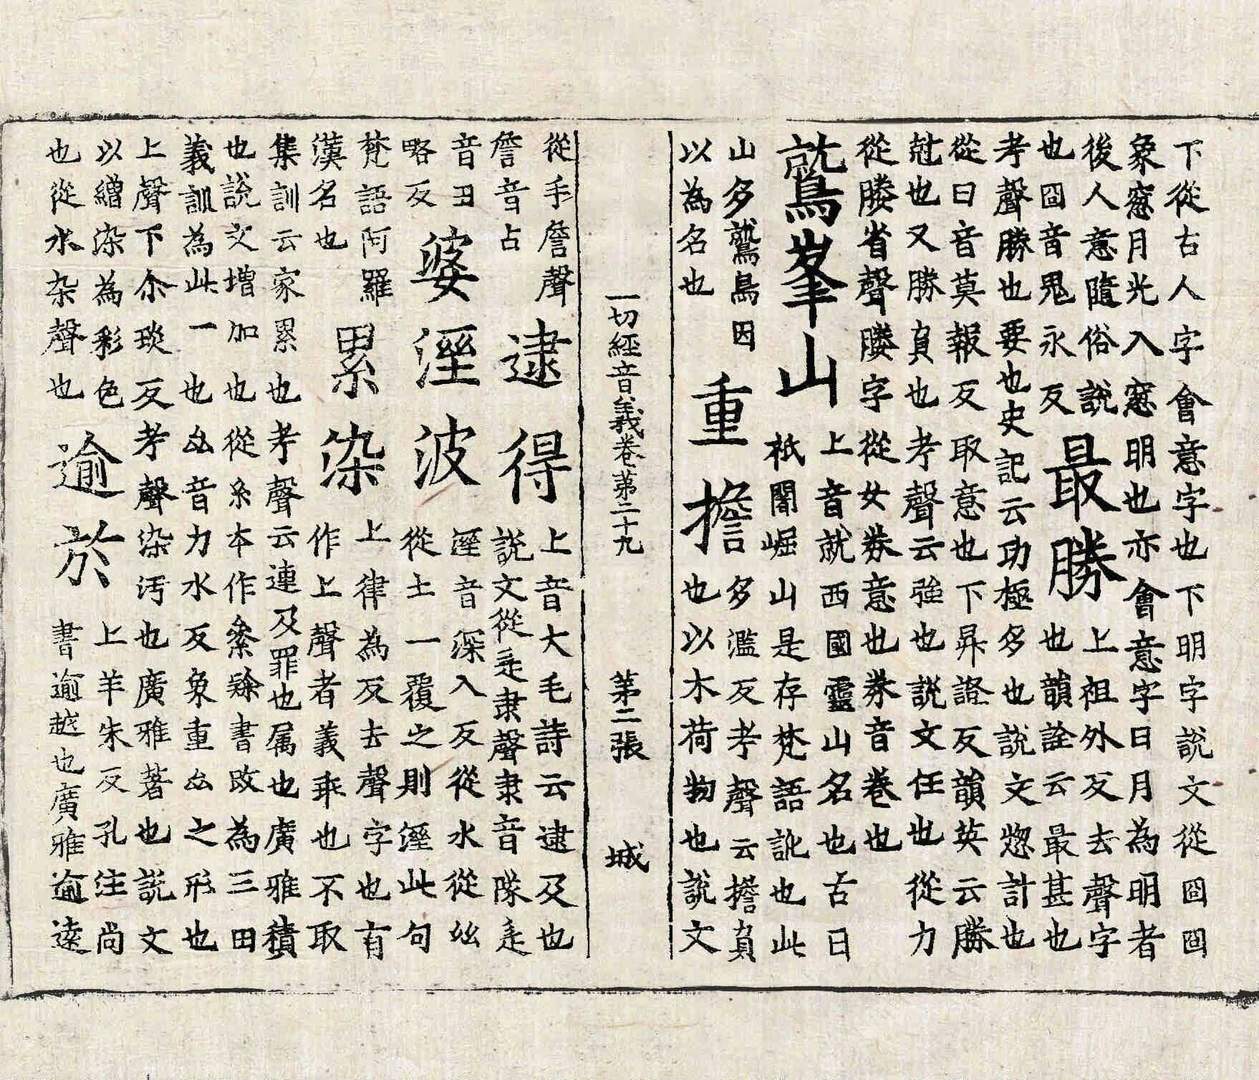 下從古人字會意字也下明字說文從囧囧
象窓月光入窓明也亦會意字日月為明者
後人意隨俗說
也囧音鬼永反
最勝
上祖外反去聲字
也韻詮云最甚也
考聲勝也要也史記云功極多也說文惣計也
從曰音莫報反取意也下昇證反韻英云勝
尅也又勝負也考聲云強也說文任也從力
從媵省聲媵字從女券意也券音卷也
鷲峯山
上音就西國靈山名也古曰
衹闍崛山是存梵語訛也此
山多鷲鳥因
以為名也
重擔
多濫反考聲云擔負
也以木荷物也說文
一切經音義卷苐二十九 苐二張 城
從手詹聲
詹音占
逮得
上音大毛詩云逮及也
說文從辵隶聲隶音隊辵
音丑
略反
婆溼波
溼音深入反從水從𢆶
從土一覆之則溼此句
梵語阿羅
漢名也
累染
上律為反去聲字也有
作上聲者義乖也不取
集訓云家累也考聲云連及罪也属也廣雅積
也說文增加也從糸本作絫隸書改為三田
義訓為此一也厽音力水反象重厽之形也
上聲下尒琰反考聲染汚也廣雅著也說文
以繒染為彩色
也從水杂聲也
逾於
上羊朱反孔注尚
書逾越也廣雅逾遠